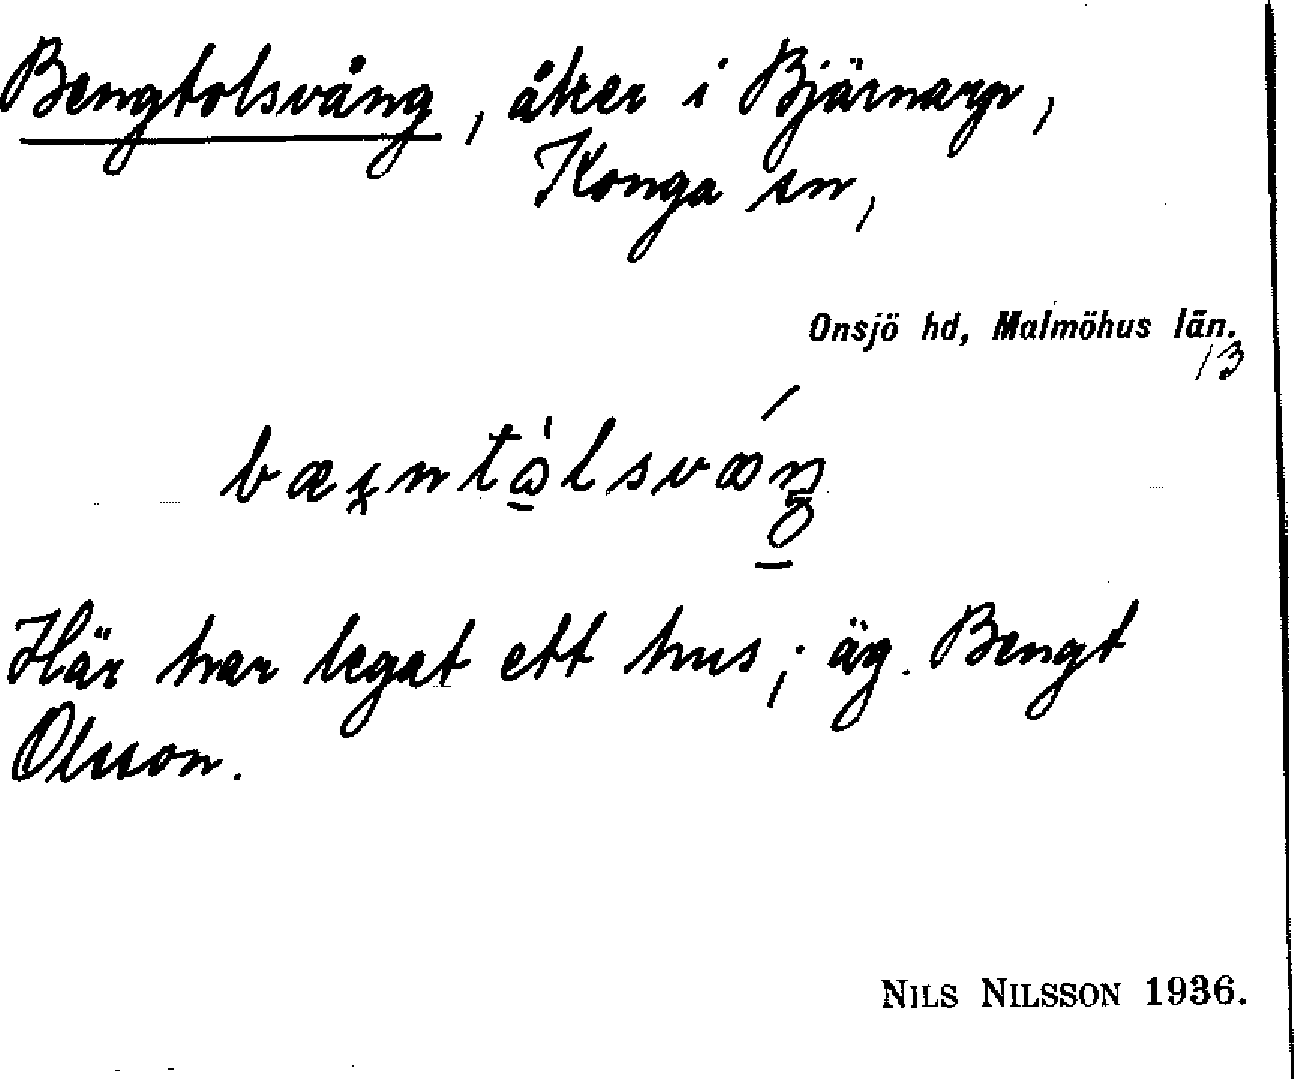 Bengtolsvång, åker i Bjärnarp,
Konga sn,
Onsjö hd, Malmöhus län.
13
Här har legat ett hus; äg. Bengt
Olsson.
NILS NILSSON 1936.